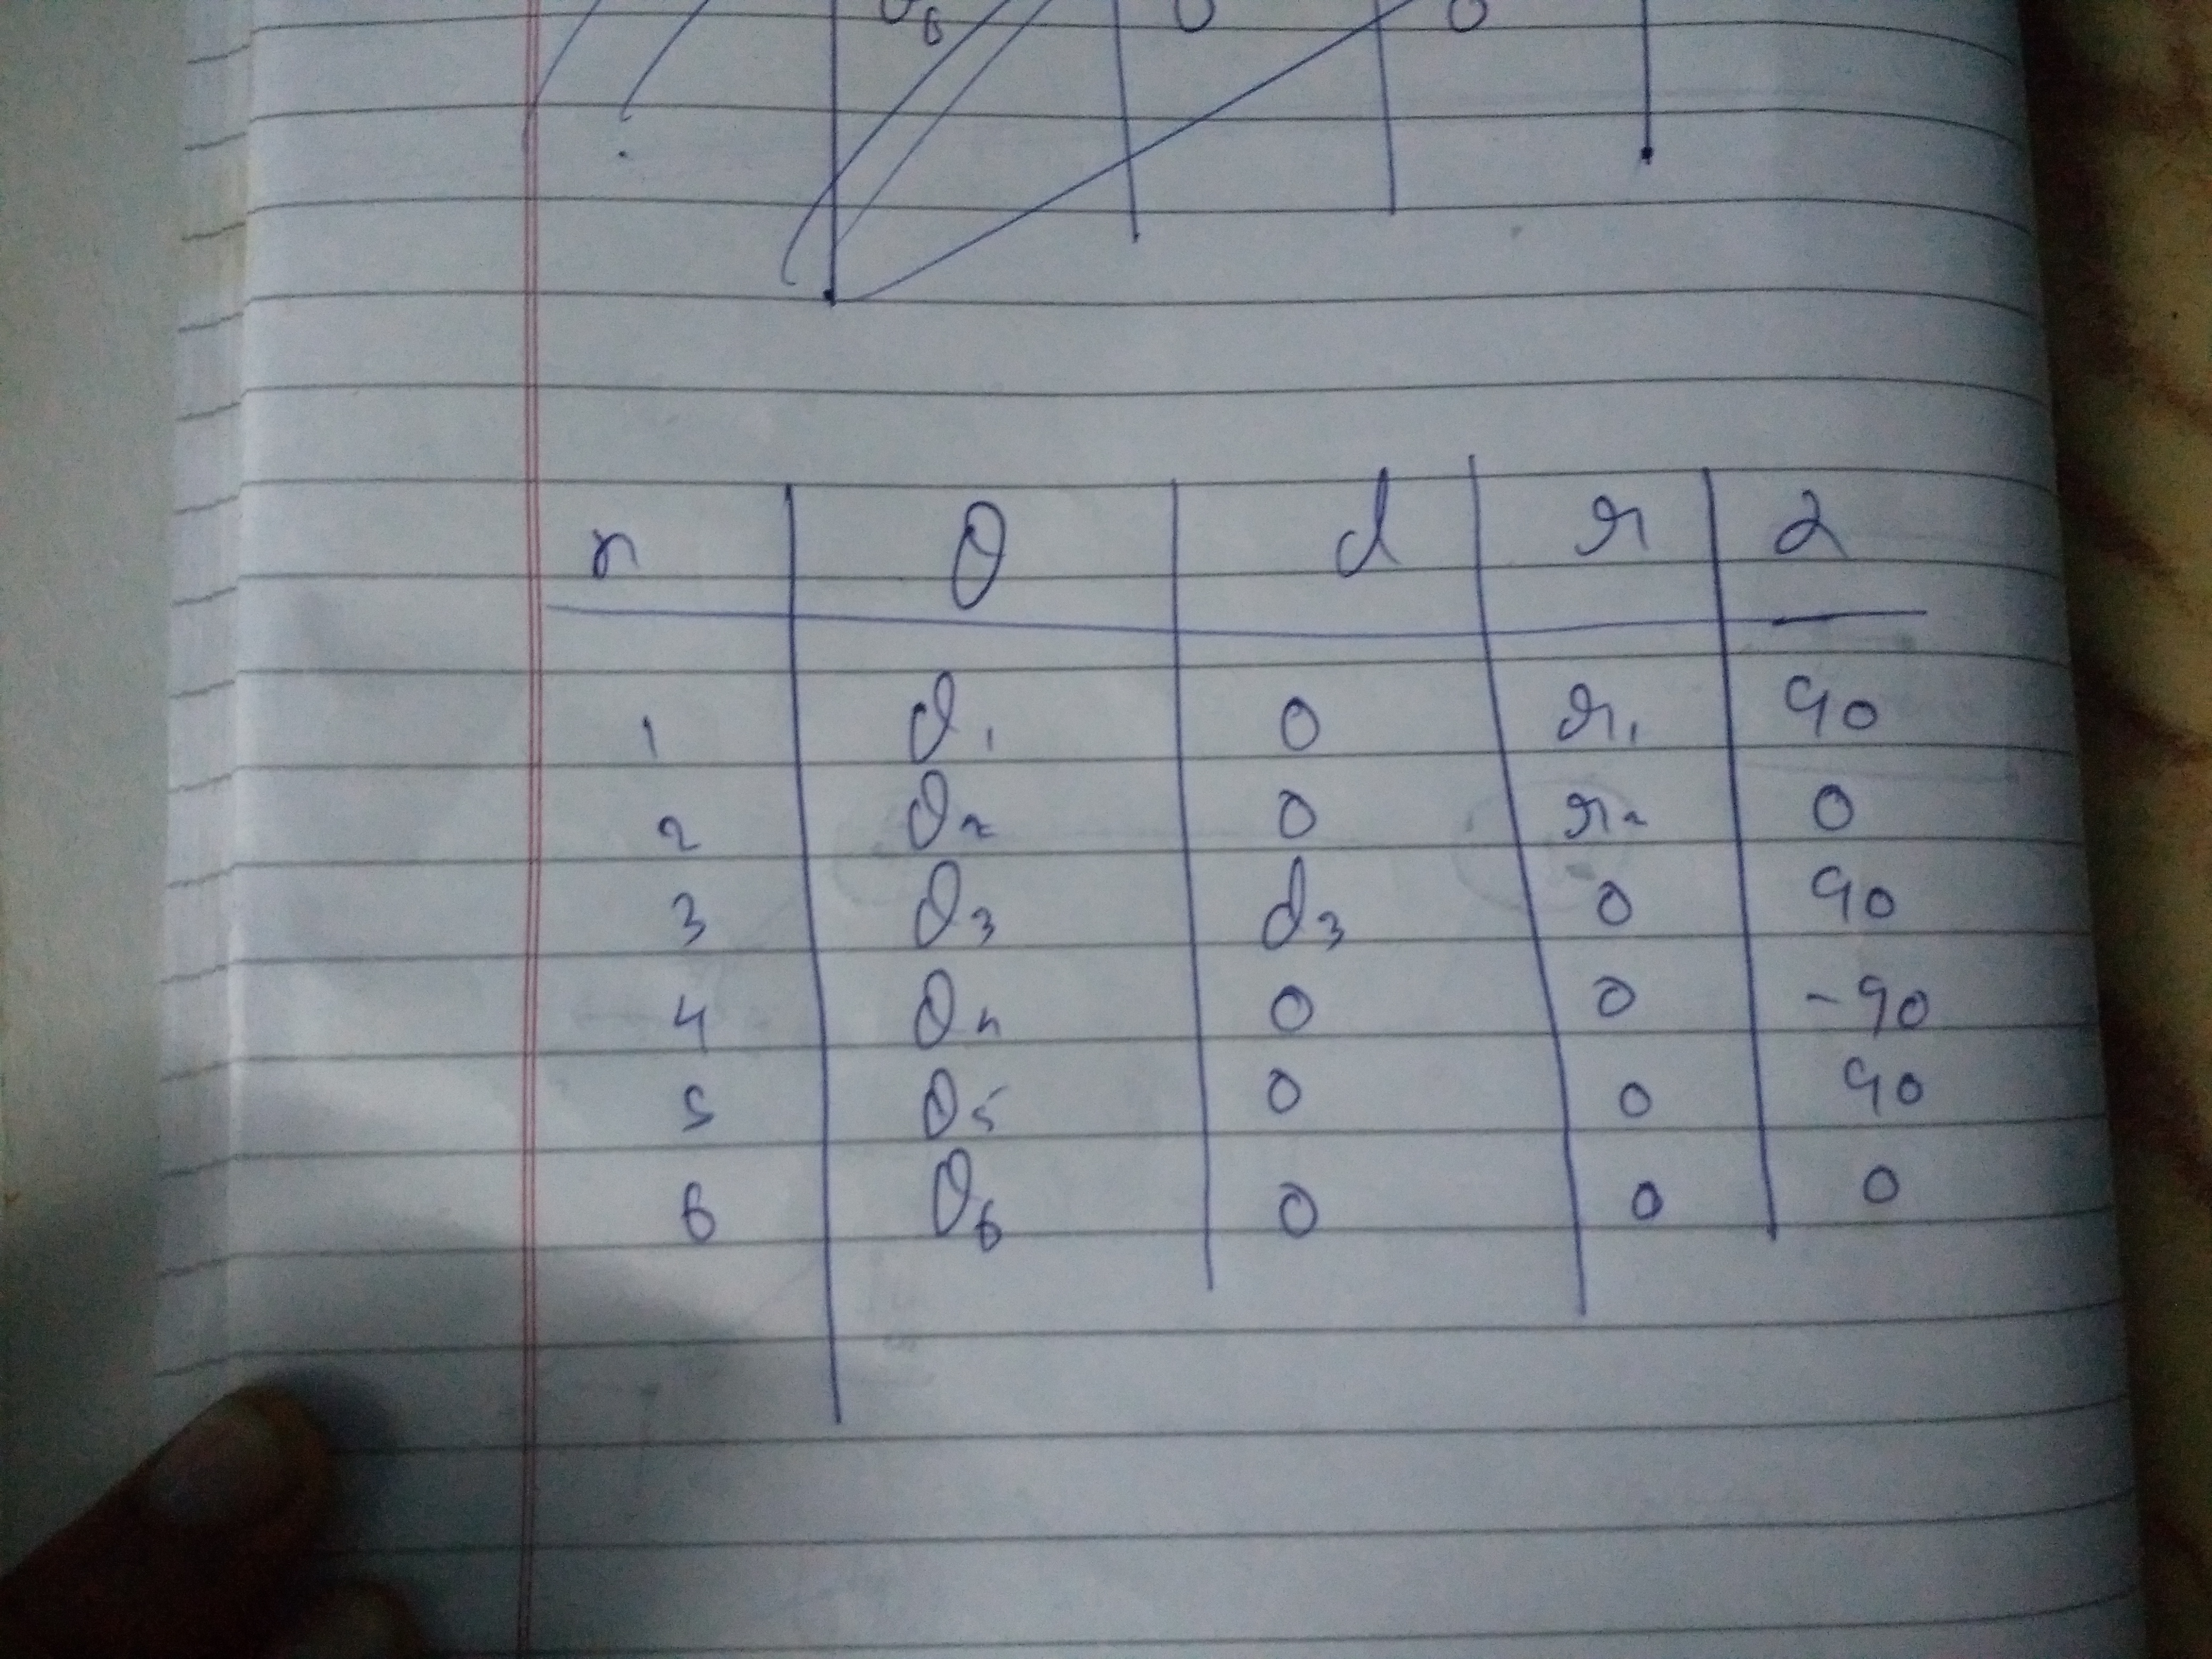 θ6 0 0
n θ d r α
1 θ1 0 r1 90
2 θ2 0 r2 0
3 θ3 d3 0 90
4 θ4 0 0 -90
5 θ5 0 0 90
6 θ6 0 0 0